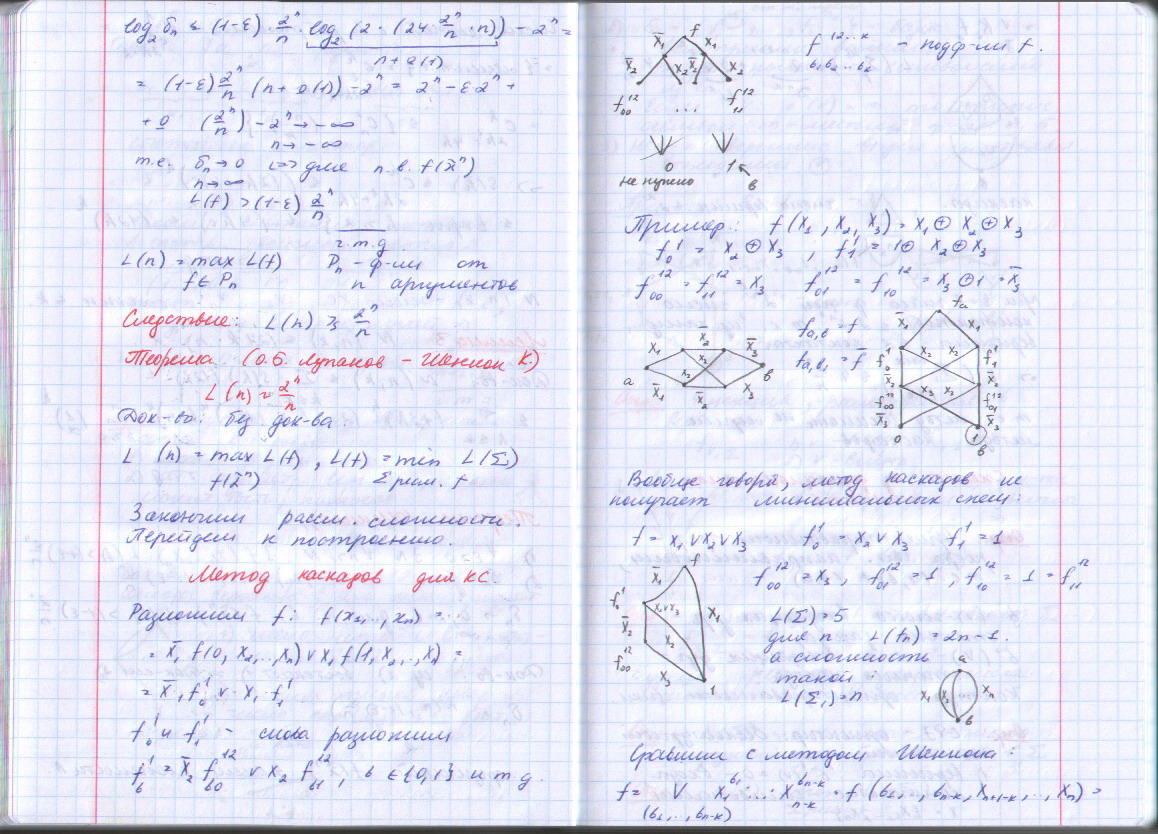 log₂ σₙ ≤ (1-ε) · 2ⁿ/n · log₂ (2 · (24 2ⁿ/n · n)) - 2ⁿ =
n + o(1)
= (1-ε) 2ⁿ/n (n + o(1)) - 2ⁿ = 2ⁿ - ε2ⁿ +
+ o (2ⁿ/n) - 2ⁿ → -∞
n → -∞
т.е. σₙ → 0 <=> для п.в. f(x̃ⁿ)
n → ∞
L(f) > (1-ε) 2ⁿ/n
ч.т.д.
L(n) = max L(f) Pₙ - ф-ии от
f ∈ Pₙ n аргументов
Следствие: L(n) ≳ 2ⁿ/n
Теорема (О.Б. Лупанов - Шеннон К)
L(n) ≈ 2ⁿ/n
Док-во: без док-ва.
L (n) = max L(f), L(f) = min L(Σ)
f(x̃ⁿ) Σ реал. f
Закончим рассм. сложности
Перейдем к построению.
Метод каскадов для КС.
Разложим f: f(x₁,..,xₙ) = ..
= x̄₁ f(0, x₂,..,xₙ) ∨ x₁ f(1, x₂,..,xₙ) =
= x̄₁ f₀¹ ∨ x₁ f₁¹
f₀¹ и f₁¹ - снова разложим
f_b¹ = x̄₂ f_b0¹² ∨ x₂ f_b1¹², b ∈ {0,1} и т.д.
f
x̄₁ x₁
x̄₂ x₂ x̄₂ x₂
f₀₀¹² ... f₁₁¹²
0 1
не нужно в
f^12..k b₁b₂..bₖ - подф-ии f.
Пример: f(x₁, x₂, x₃) = x₁ ⊕ x₂ ⊕ x₃
f₀¹ = x₂ ⊕ x₃ , f₁¹ = 1 ⊕ x₂ ⊕ x₃
f₀₀¹² = f₁₁¹² = x₃ f₀₁¹² = f₁₀¹² = x₃ ⊕ 1 = x̄₃
x₁ x̄₂ x̄₃
a x₂ в
x̄₁ x̄₂ x₃
f a,в = f
f a,в₁ = f̄
fa
x̄₁ x₁
f₀¹ x₂ x₂ f₁¹
x̄₂ x̄₂
f₀₀¹² x₃ f₀₁¹²
x̄₃ x̄₃
0 1
в
Вообще говоря, метод каскадов не
получает минимальных схем:
f = x₁ ∨ x₂ ∨ x₃ f₀¹ = x₂ ∨ x₃ f₁¹ = 1
f₀₀¹² = x₃ , f₀₁¹² = 1 , f₁₀¹² = 1 = f₁₁¹²
f
x̄₁
f₀¹ x₂∨x₃ x₁
x̄₂ x₂
f₀₀¹² x₃ 1
L(Σ) = 5
для n L(fₙ) = 2n - 1.
а сложность
такой:
L(Σ₁) = n
a
x₁ x₂ xₙ
в
Сравним с методом Шеннона:
f = ∨ x₁^b₁ ... x_{n-k}^b_{n-k} · f (b₁,.., b_{n-k}, x_{n+1-k},.., xₙ) =
(b₁,..,b_{n-k})